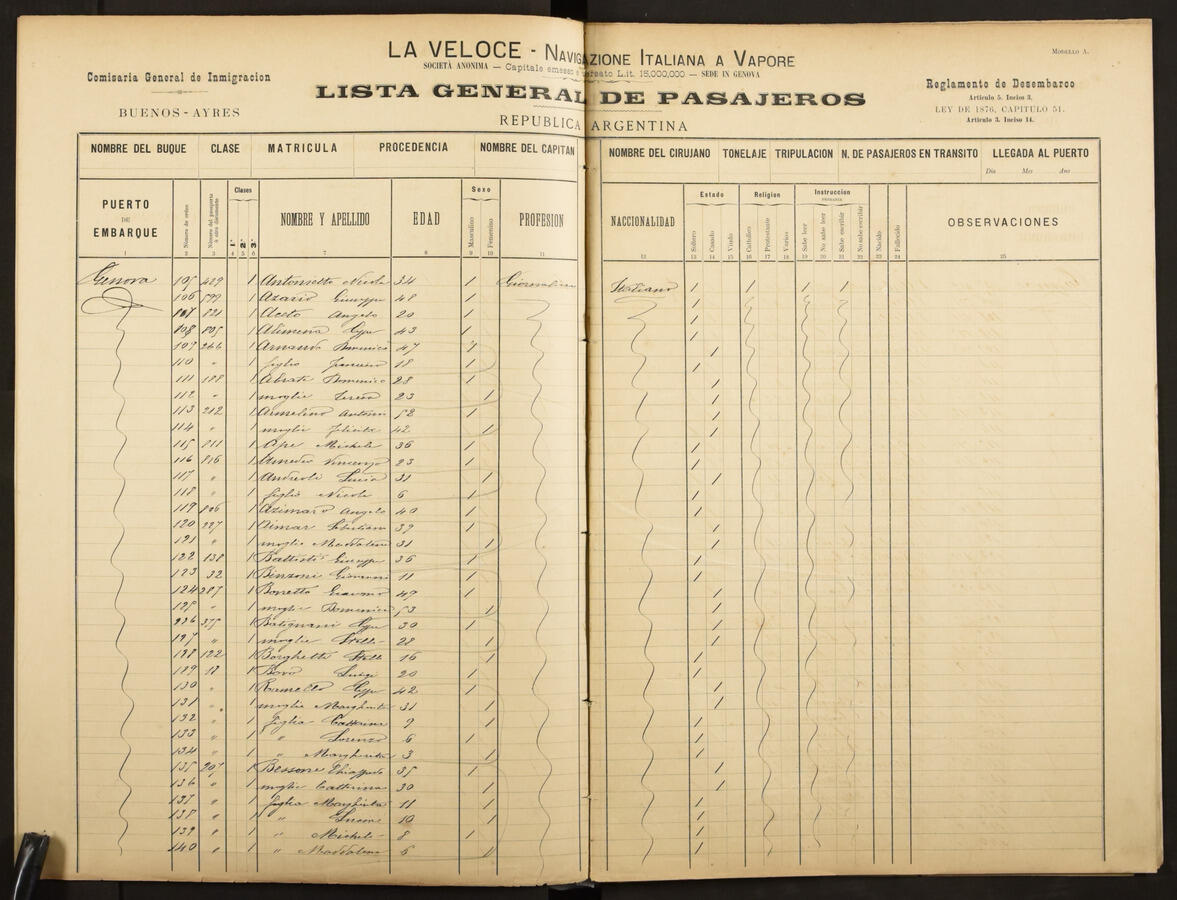 LA VELOCE - NAVIGAZIONE ITALIANA A VAPORE
SOCIETÀ ANONIMA — Capitale emesso e versato L.it. 15,000,000 — SEDE IN GENOVA
MODELLO A.
Comisaria General de Inmigracion
BUENOS-AYRES
LISTA GENERAL DE PASAJEROS
REPUBLICA ARGENTINA
Reglamento de Desembarco
Articulo 5. Inciso 3.
LEY DE 1876, CAPITULO 51.
Articulo 3. Inciso 14.
NOMBRE DEL BUQUE CLASE MATRICULA PROCEDENCIA NOMBRE DEL CAPITAN NOMBRE DEL CIRUJANO TONELAJE TRIPULACION N. DE PASAJEROS EN TRANSITO LLEGADA AL PUERTO
Dia Mes Ano
PUERTO DE EMBARQUE Número de orden Número del pasaporte ú otro documento Clases 1.ª 2.ª 3.ª NOMBRE Y APELLIDO EDAD Sexo Masculino Femenino PROFESION NACCIONALIDAD Estado Soltero Casado Viudo Religion Catolico Protestante Varios Instruccion Sabe leer No sabe leer Sabe escribir No sabe escribir Nacido Fallecido OBSERVACIONES
1 2 3 4 5 6 7 8 9 10 11 12 13 14 15 16 17 18 19 20 21 22 23 24 25
Genova 105 429 1 Nicola 34 / Italiano / / / /
106 1 Azario Giuseppe 48 / /
107 821 1 Aceto Angelo 20 / /
108 805 1 43 / /
109 266 1 Domenico 47 / /
110 " 1 figlio Francesco 18 / /
111 188 1 Abrate Domenico 28 / /
112 " 1 moglie Teresa 23 / /
113 212 1 Armelino Antonio 52 / /
114 " 1 moglie Felicita 42 / /
115 811 1 Ape Michele 36 / /
116 816 1 Amedeo Vincenzo 23 / /
117 " 1 Andreoli Luisa 31 / /
118 " 1 figlio Nicola 6 / /
119 806 1 Angelo 40 / /
120 227 1 Aimar 39 / /
121 " 1 moglie Maddalena 31 / /
122 838 1 Battisti Giuseppe 36 / /
123 32 1 Benzoni Giovanni 11 / /
124 287 1 Bonetto Giacomo 49 / /
125 " 1 moglie Domenica 53 / /
126 375 1 30 / /
127 " 1 moglie 28 / /
128 122 1 Borghetti 16 / /
129 18 1 Bovo Luigi 20 / /
130 " 1 Ramello 42 / /
131 " 1 moglie Margherita 31 / /
132 " 1 figlia Catterina 9 / /
133 " 1 " Lorenzo 6 / /
134 " 1 " Margherita 3 / /
135 207 1 Bessone 35 / /
136 " 1 moglie Catterina 30 / /
137 " 1 figlia Margherita 11 / /
138 " 1 " 10 / /
139 " 1 " Michele 8 / /
140 " 1 " Maddalena 6 / /